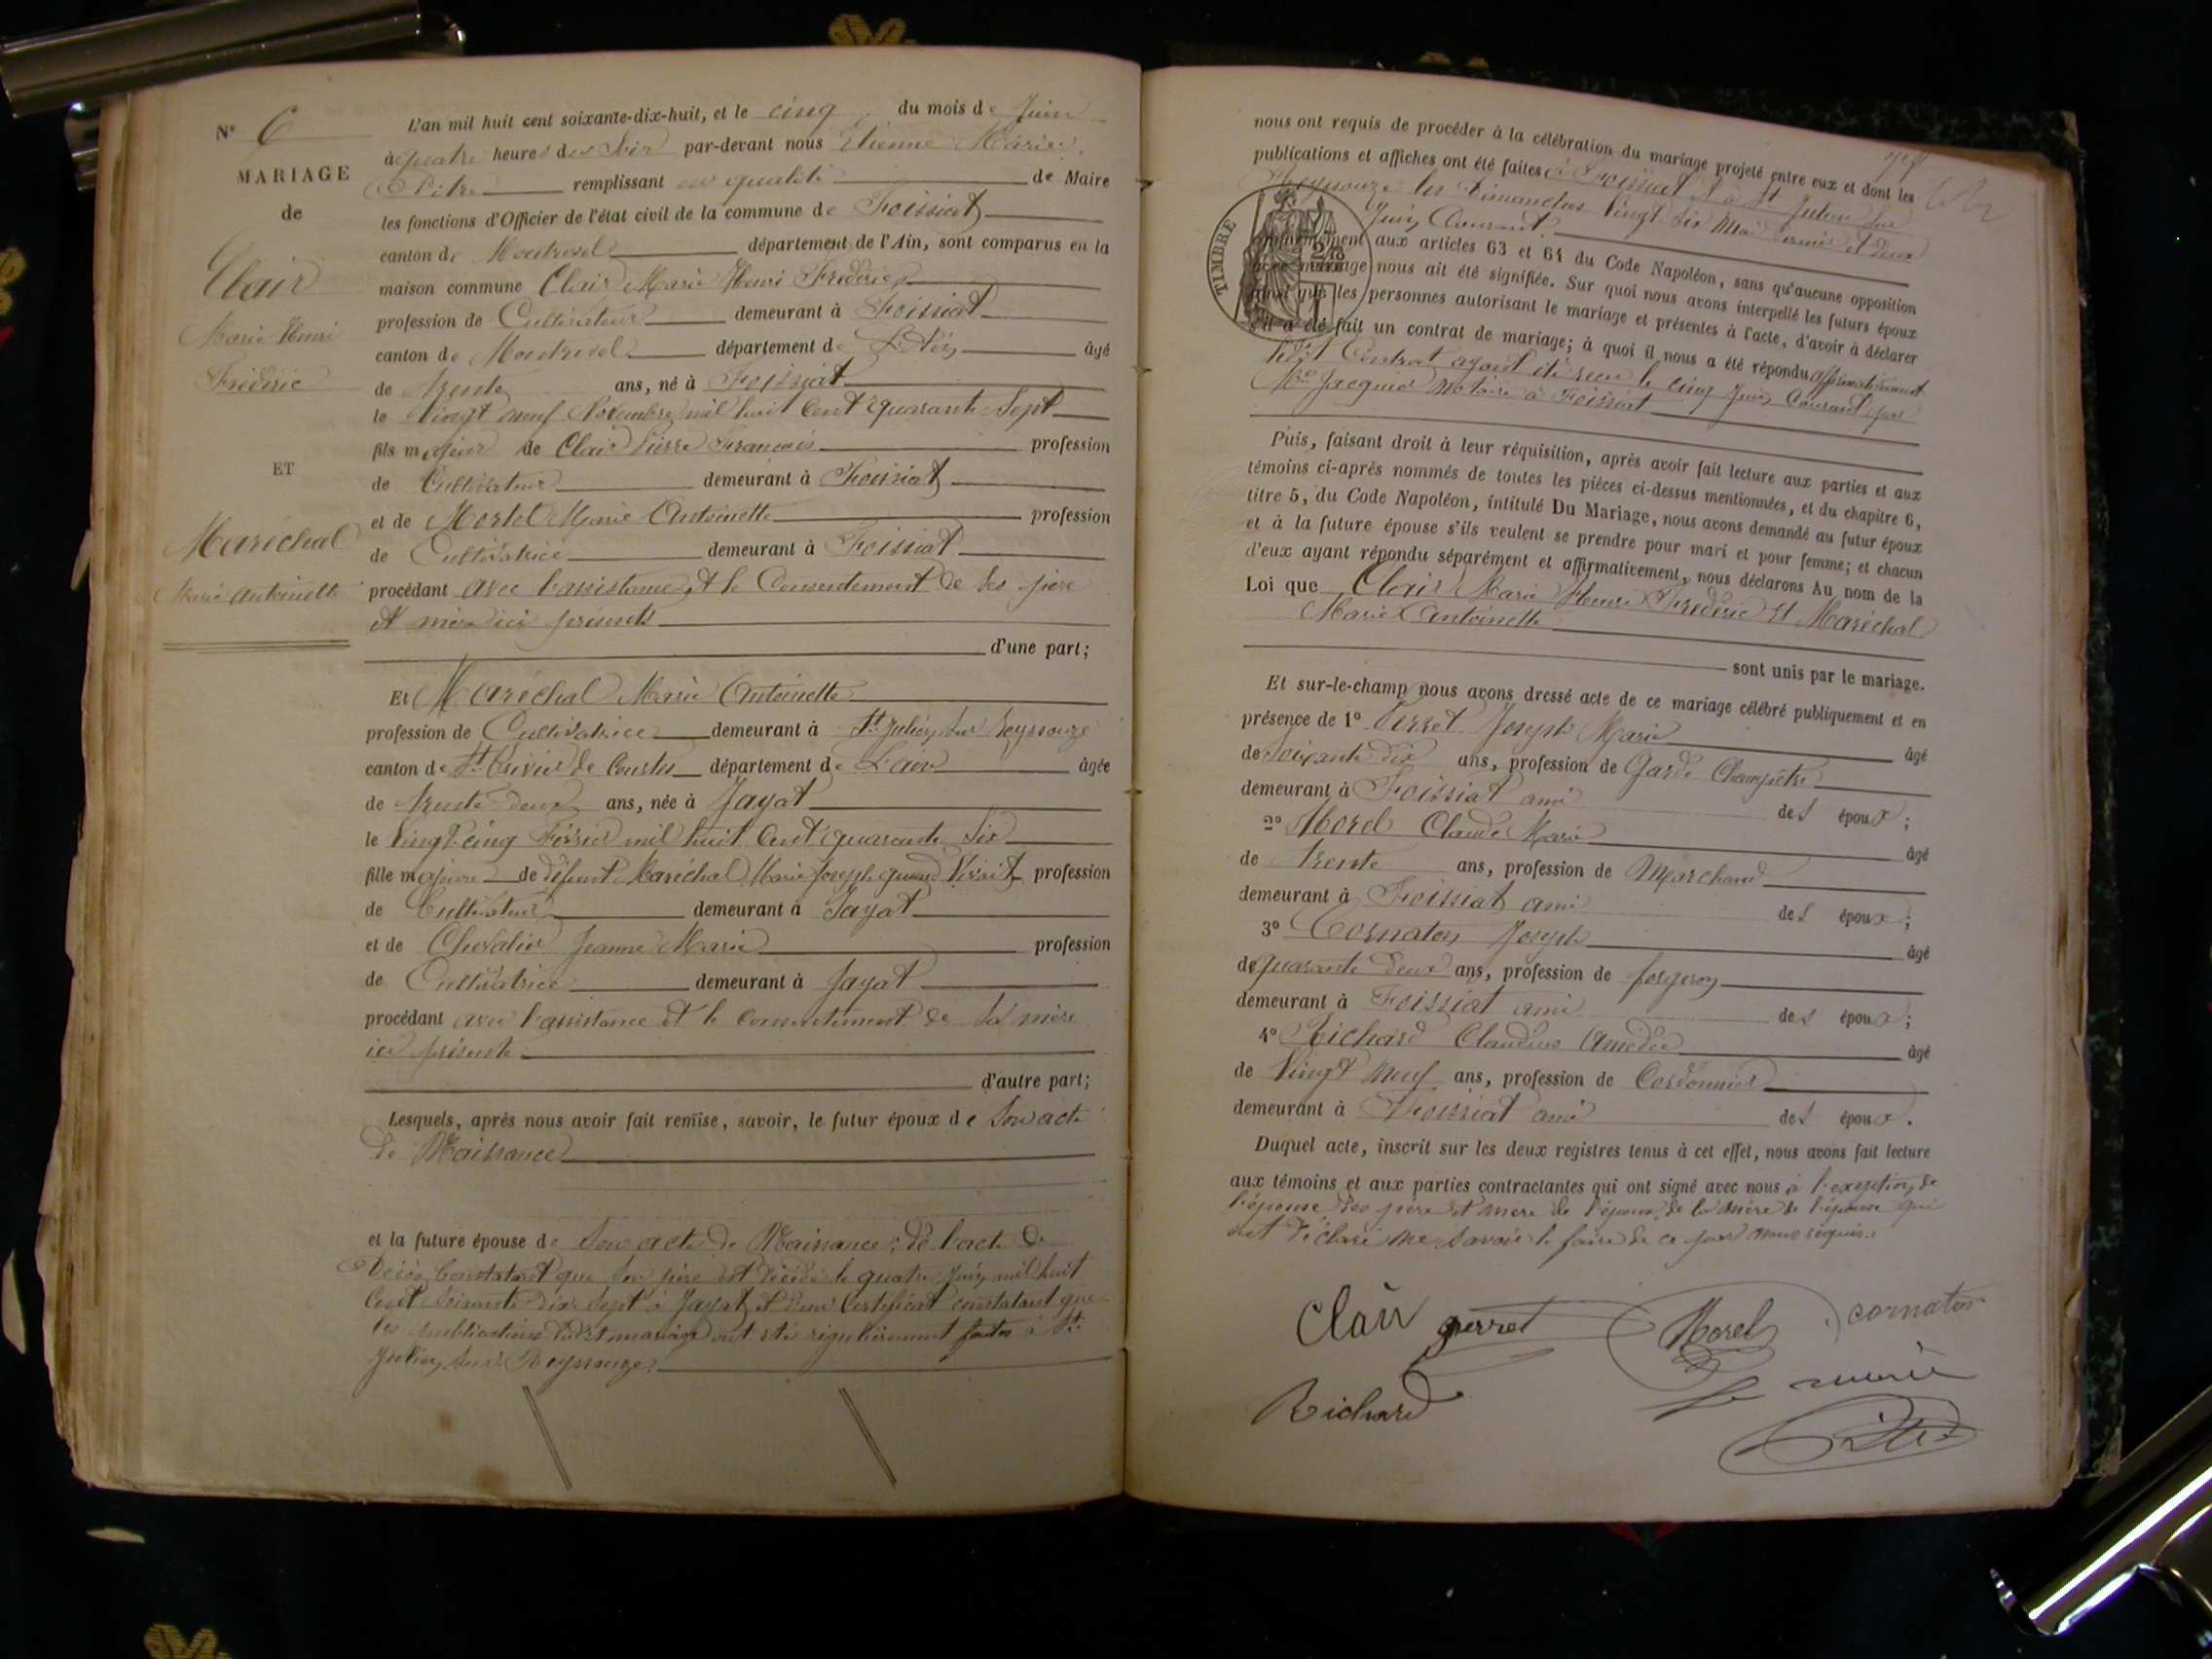 N° 6
MARIAGE
de
Clair
Marie Henri
Frédéric
ET
Maréchal
Marie Antoinette
L'an mil huit cent soixante-dix-huit, et le cinq du mois de Juin
à quatre heures du Soir par-devant nous Etienne Marie
Pitre remplissant en qualité de Maire
les fonctions d'Officier de l'état civil de la commune de Foissiat
canton de Montrevel département de l'Ain, sont comparus en la
maison commune Clair Marie Henri Frédéric
profession de Cultivateur demeurant à Foissiat
canton de Montrevel département de L'Ain âgé
de trente ans, né à Foissiat
le Vingt neuf Novembre mil huit Cent quarante-Sept
fils majeur de Clair Pierre François profession
de Cultivateur demeurant à Foissiat
et de Morlel Marie Antoinette profession
de Cultivatrice demeurant à Foissiat
procédant avec l'assistance et le Consentement de Ses père
et mère ici présents
d'une part;
Et Maréchal Marie Antoinette
profession de Cultivatrice demeurant à St Julien Sur Reyssouze
canton de St Trivier de Courtes département de L'ain âgée
de trente-deux ans, née à Jayat
le Vingt-cinq Février mil huit Cent quarante Six
fille majeure de défunt Maréchal Marie Joseph quand Vivait profession
de Cultivateur demeurant à Jayat
et de Chevalier Jeanne Marie profession
de Cultivatrice demeurant à Jayat
procédant avec l'assistance et le Consentement de Sa mère
ici présente
d'autre part;
Lesquels, après nous avoir fait remise, savoir, le futur époux de Son acte
de Naissance
et la future épouse de Son acte de Naissance; de l'acte de
Décès Constatant que Son père est décédé le quatre Juin mil huit
Cent Soixante Dix Sept à Jayat et d'un Certificat constatant que
les publications dudit mariage ont été régulièrement faites à St
Julien Sur Reyssouze
nous ont requis de procéder à la célébration du mariage projeté entre eux et dont les
publications et affiches ont été faites à Foissiat et à St Julien Sur
Reyssouze les Dimanches Vingt Six Mai Dernier et Deux
Juin Courant.
TIMBRE
conformément aux articles 63 et 64 du Code Napoléon, sans qu'aucune opposition
à ce mariage nous ait été signifiée. Sur quoi nous avons interpellé les futurs époux
ainsi que les personnes autorisant le mariage et présentes à l'acte, d'avoir à déclarer
s'il a été fait un contrat de mariage; à quoi il nous a été répondu affirmativement
ledit Contrat ayant été reçu le cinq Juin Courant par
Me Jacquet Notaire à Foissiat
Puis, faisant droit à leur réquisition, après avoir fait lecture aux parties et aux
témoins ci-après nommés de toutes les pièces ci-dessus mentionnées, et du chapitre 6,
titre 5, du Code Napoléon, intitulé Du Mariage, nous avons demandé au futur époux
et à la future épouse s'ils veulent se prendre pour mari et pour femme; et chacun
d'eux ayant répondu séparément et affirmativement, nous déclarons Au nom de la
Loi que Clair Marie Henri Frédéric et Maréchal
Marie Antoinette
sont unis par le mariage.
Et sur-le-champ nous avons dressé acte de ce mariage célébré publiquement et en
présence de 1° Perret Joseph Marie âgé
de Soixante dix ans, profession de Garde Champêtre
demeurant à Foissiat ami des époux;
2° Morel Claude Marie âgé
de trente ans, profession de Marchand
demeurant à Foissiat ami des époux;
3° Cornaton Joseph âgé
de quarante deux ans, profession de forgeron
demeurant à Foissiat ami des époux;
4° Richard Claudius Amédée âgé
de Vingt neuf ans, profession de Cordonnier
demeurant à Foissiat ami des époux.
Duquel acte, inscrit sur les deux registres tenus à cet effet, nous avons fait lecture
aux témoins et aux parties contractantes qui ont signé avec nous à l'exeption de
l'épouse des père et mère de l'époux, de la mère de l'épouse qui
ont déclaré ne Savoir le faire de ce par nous requis.
Clair perret Morel cornaton
Richard Le maire
Pitre